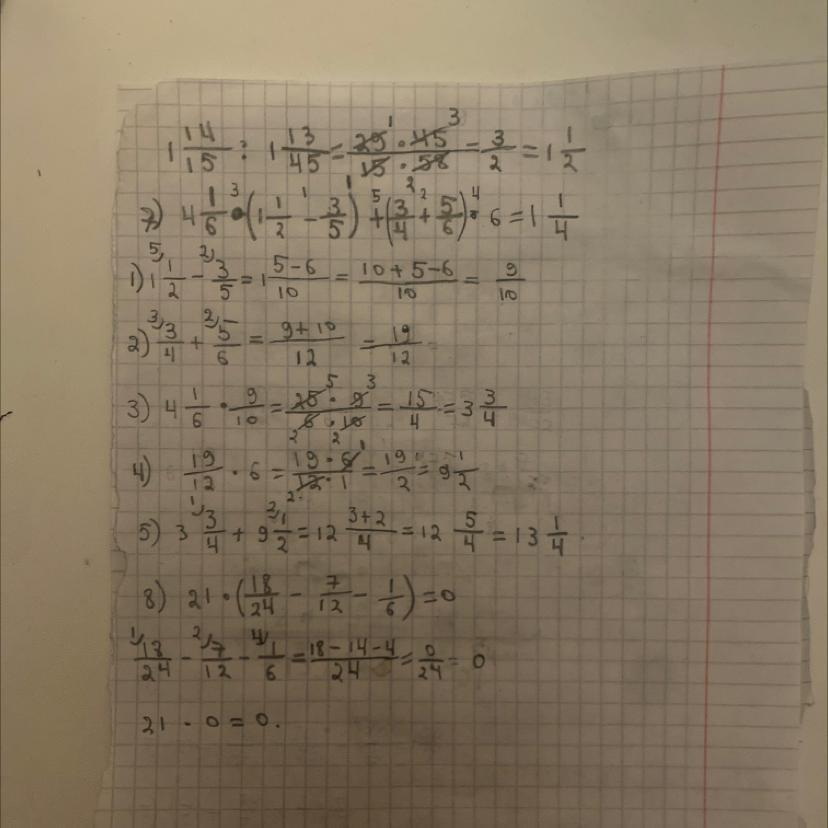 1 14/15 : 1 13/45 = 29¹ · 45³ / 15 · 58 = 3/2 = 1 1/2
7) 4 1/6 ³· (1 1/2 ¹- 3/5) ⁵+ (3/4 ²+ 5/6) ⁴· 6 = 1 1/4
1) 1 ⁵⁾1/2 - ²⁾3/5 = 1 5-6/10 = 10+5-6/10 = 9/10
2) ³⁾3/4 + ²⁾5/6 = 9+10/12 = 19/12
3) 4 1/6 · 9/10 = 25⁵ · 9³ / 6₂ · 10₂ = 15/4 = 3 3/4
4) 19/12 · 6 = 19 · 6¹ / 12₂ · 1 = 19/2 = 9 1/2
5) 3 ¹⁾3/4 + 9 ²⁾1/2 = 12 3+2/4 = 12 5/4 = 13 1/4.
8) 21 · (18/24 - 7/12 - 1/6) = 0
¹⁾18/24 - ²⁾7/12 - ⁴⁾1/6 = 18-14-4/24 = 0/24 = 0
21 · 0 = 0.